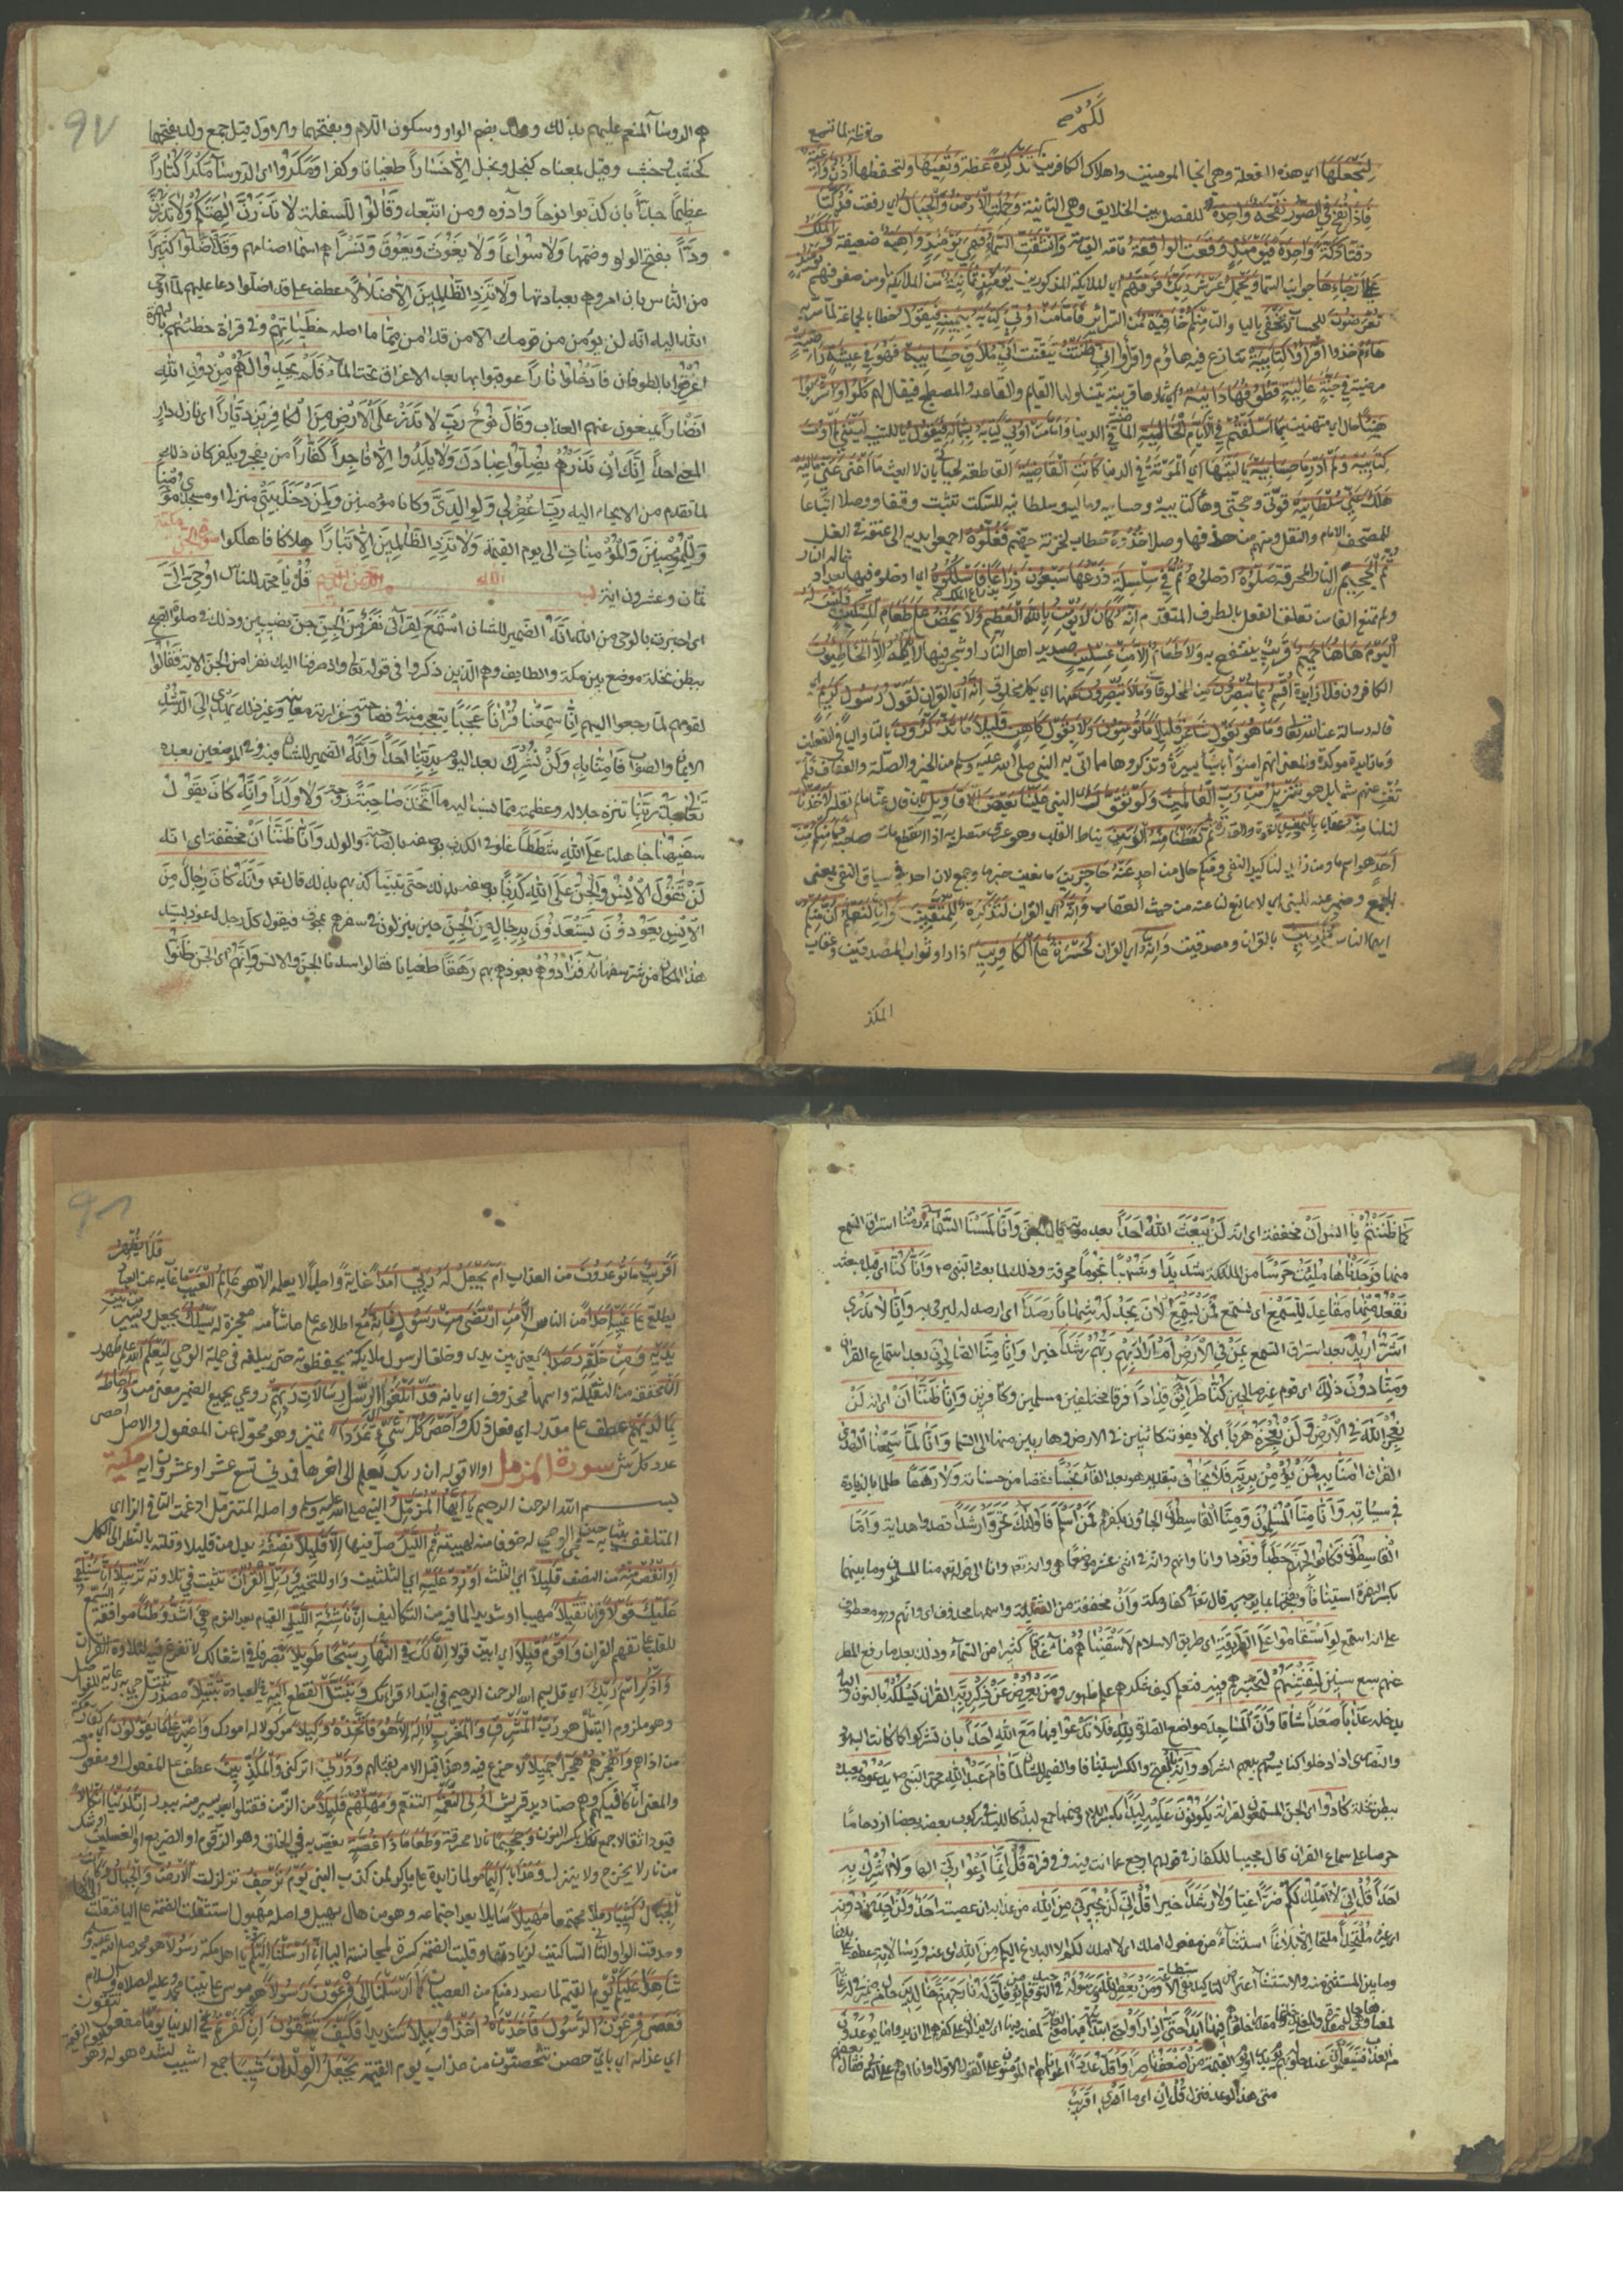 لكم
حافظة لما تسمع
لِنَجْعَلَهَا اي هذه الفعلة وهي انجا المومنين واهلاك الكافرين لكم تذكرة عظة وتعيها ولتحفظها اذن واعية
فاذا نفخ في الصور نفخة واحدة للفصل بين الخلايق وهي الثانية وحملت الارض والجبال اي رفعت فدكتا
دقتا دكة واحدة فيومئذ وقعت الواقعة قامة القيامة وانشقت السماء فهي يومئذ واهية ضعيفة والملك
على ارجاءها جوانب السما ويحمل عرش ربك فوقهم اي الملايكة المذكورين يومئذ ثمانية من الملايكة او من صفوفهم يومئذ
تعرضون للحساب لا تخفى باليا والتا منكم خافية من السرائر فاما من اوتي كتابه بيمينه فيقول خطابا لجماعة لما سر به
هاؤم خذوا اقرؤا كتابيه تنازع فيه هاؤم واقرؤا اني ظننت تيقنت اني ملاق حسابيه فهو في عيشة راضية
مرضية في جنة عالية قطوفها دانية اي ثمارها قريبة يتناولها القايم والقاعد والمضطجع فيقال لهم كلوا واشربوا
هنيئا حال اي متهنئين بما اسلفتم في الايام الخالية الماضية في الدنيا واما من اوتي كتابه بشماله فيقول يا للتنبيه ليتني لم اوت
كتابيه ولم ادر ما حسابيه يا ليتها اي الموتة في الدنيا كانت القاضية القاطعة لحياتي بان لا ابعث ما اغنى عني ماليه
هلك عني سلطانيه قوتي وحجتي وها كتابيه وحسابيه وماليه وسلطانيه للسكت تثبت وقفا ووصلا اتباعا
للمصحف الامام والنقل ومنهم من حذفها وصلا خذوه خطاب لخزنة جهنم فغلوه اجمعوا يديه الى عنقه في الغل
ثم الجحيم النار المحرقة صلوه ادخلوه ثم في سلسلة ذرعها سبعون ذراعا بذراع الملك فاسلكوه اي ادخلوه فيها بعد ادخاله النار
ولم تمنع الفا من تعلق الفعل بالظرف المتقدم انه كان لا يؤمن بالله العظيم ولا يحض على طعام المسكين فليس له
اليوم هاهنا حميم قريب ينتفع به ولا طعام الا من غسلين صديد اهل النار او شجر فيها لا ياكله الا الخاطئون
الكافرون فلا زايدة اقسم بما تبصرون من المخلوقات وما لا تبصرون منها اي بكل مخلوق انه اي القران لقول رسول كريم اي
قاله رسالة عن الله تعالى وما هو بقول شاعر قليلا ما تؤمنون ولا بقول كاهن قليلا ما تذكرون بالتا واليا في الفعلين
وما زايدة موكدة والمعنى انهم امنوا باشيا يسيرة وتذكروها مما اتى به النبي صلى الله عليه وسلم من الخير والصلة والعفاف فلم
تغن عنهم شيا بل هو تنزيل من رب العالمين ولو تقول اي النبي علينا بعض الاقاويل بان قال عنا ما لم نقله لاخذنا
لنلنا منه عقابا باليمين بالقوة والقدرة ثم لقطعنا منه الوتين نياط القلب وهو عرق متصل به اذا انقطع مات صاحبه فما منكم من
احد هو اسم ما ومن زايدة لتاكيد النفي ومنكم حال من احد عنه حاجزين مانعين خبر ما وجمع لان احدا في سياق النفي بمعنى
الجمع وضمير عنه للنبي اي لا مانع لنا عنه من حيث العقاب وانه اي القران لتذكرة للمتقين وانا لنعلم ان منكم
ايها الناس مكذبين بالقران ومصدقين وانه اي القران لحسرة على الكافرين اذا راوا ثواب المصدقين وعقاب
المكذ
٩٧
هم الروسآ المنعم عليهم بذلك وولد بضم الواو وسكون اللام وبفتحهما والاول قيل جمع ولد بفتحهما
كخشب وخشب وقيل بمعناه كبخل وبخل الا خسارا طغيانا وكفرا ومكروا اى الروسآ مكرا كبارا
عظيما جدا بان كذبوا نوحا وآذوه ومن اتبعه وقالوا للسفلة لا تذرن الهتكم ولا تذرن
ودا بفتح الواو وضمها ولا سواعا ولا يغوث ويعوق ونسرا هم اسمآ اصنامهم وقد اضلوا كثيرا
من الناس بان امروهم بعبادتها ولا تزد الظالمين الا ضلالا عطف على قد اضلوا دعا عليهم لما اوحى
الله اليه انه لن يؤمن من قومك الا من قد امن مما ما صلة خطاياهم وفي قراة خطيئتهم بالهمزة
اغرقوا بالطوفان فادخلوا نارا عوقبوا بها بعد الاغراق تحت المآء فلم يجدوا لهم من دون الله
انصارا يمنعون عنهم العذاب وقال نوح رب لا تذر على الارض من الكافرين ديارا اى نازل دار
المعنى احدا انك ان تذرهم يضلوا عبادك ولا يلدوا الا فاجرا كفارا من يفجر ويكفر كان ذلك
لما تقدم من الايحاء اليه رب اغفر لي ولوالدي وكانا مؤمنين ولمن دخل بيتي منزلى او مسجدى مؤمنا
وللمؤمنين والمؤمنات الى يوم القيمة ولا تزد الظالمين الا تبارا هلاكا فاهلكوا سورة الجن مكية
ثمان وعشرون اية بسم الله الرحمن الرحيم قل يا محمد للناس اوحي الي
اى اخبرت بالوحى من الله انه الضمير للشان استمع لقرآتى نفر من الجن جن نصيبين وذلك فى صلوة الصبح
ببطن نخلة موضع بين مكة والطايف وهم الذين ذكروا فى قوله تعالى واذ صرفنا اليك نفرا من الجن الاية فقالوا
لقومهم لما رجعوا اليهم انا سمعنا قرانا عجبا يتعجب منه فى فصاحته وغزارة معانيه وغير ذلك يهدى الى الرشد
الايمان والصواب فامنا به ولن نشرك بعد اليوم بربنا احدا وانه الضمير للشان فيه وفى الموضعين بعده
تعالى جد ربنا تنزه جلاله وعظمته عما نسب اليه ما اتخذ صاحبة زوجة ولا ولدا وانه كان يقول
سفيهنا جاهلنا على الله شططا غلوا فى الكذب بوصفه بالصاحبة والولد وانا ظننا ان مخففة اى انه
لن تقول الانس والجن على الله كذبا بوصفه بذلك حتى تبينا كذبهم بذلك قال تعالى وانه كان رجال من
الانس يعوذون يستعيذون برجال من الجن حين ينزلون فى سفرهم بمخوف فيقول كل رجل اعوذ بسيد
هذا المكان من شر سفهائه فزادوهم بعوذهم بهم رهقا طغيانا فقالوا سدنا الجن والانس وانهم اى الجن ظنوا
كما ظننتم يا انس ان مخففة اى انه لن يبعث الله احدا بعد موته قال الجن وانا لمسنا السماء رمنا استراق السمع
منها فوجدناها ملئت حرسا من الملئكة شديدا وشهبا نجوما محرقة وذلك لما بعث النبى ص وانا كنا اى قبل مبعثه
نقعد منها مقاعد للسمع اى نستمع فمن يستمع الآن يجد له شهابا رصدا اى ارصد له ليرمى به وانا لا ندرى
اشر اريد بعد استراق السمع بمن فى الارض ام اراد بهم ربهم رشدا خيرا وانا منا الصالحون بعد استماع القران
ومنا دون ذلك اى قوم غير صالحين كنا طرائق قددا فرقا مختلفين مسلمين وكافرين وانا ظننا ان اى انه لن
نعجز الله فى الارض ولن نعجزه هربا اى لا نفوته كائنين فى الارض وهاربين منها الى السما وانا لما سمعنا الهدى
القران امنا به فمن يؤمن بربه فلا يخاف بتقدير هو بعد الفآء بخسا نقصا من حسناته ولا رهقا ظلما بالزيادة
فى سيآته وانا منا المسلمون ومنا القاسطون الجاؤون بكفرهم فمن اسلم فاولئك تحروا رشدا قصدوا هداية واما
القاسطون فكانوا لجهنم حطبا وقودا وانا وانهم وانه فى اثنى عشر موضعا هى وانه تعالى وانا الى قوله منا المسلمون وما بينهما
بكسر الهمزة استينافا وبفتحها بما يوجه به قال تعالى فى كفار مكة وان مخففة من الثقيلة واسمها محذوف اى وانهم وهو معطوف
على انه استمع لو استقاموا على الطريقة اى طريق الاسلام لاسقيناهم ماء غدقا كثيرا من السمآء وذلك بعد ما رفع المطر
عنهم سبع سنين لنفتنهم لنختبرهم فيه فنعلم كيف شكرهم علم ظهور ومن يعرض عن ذكر ربه القران نسلكه بالنون واليا
ندخله عذابا صعدا شاقا وان المساجد مواضع الصلوة لله فلا تدعوا فيها مع الله احدا بان تشركوا كما كانت اليهود
والنصارى اذا دخلوا كنايسهم وبيعهم اشركوا وانه بالفتح والكسر استينافا والضمير للشان لما قام عبد الله محمد النبى ص يدعوه يعبده
ببطن نخلة كادوا اى الجن المستمعون لقراته يكونون عليه لبدا بكسر اللام وضمها جمع لبدة كاللبد فى ركوب بعضهم بعضا ازدحاما
حرصا على سماع القران قال مجيبا للكفار فى قولهم ارجع عما انت فيه وفى قراة قل انما ادعوا ربى الها ولا اشرك به
احدا قل انى لا املك لكم ضرا غيا ولا رشدا خيرا قل انى لن يجيرنى من الله من عذابه ان عصيته احد ولن اجد من دونه
اى غيره ملتحدا ملتجأ الا بلاغا استثناء من مفعول املك اى لا املك لكم الا البلاغ اليكم من الله اى عنه ورسالاته عطف على بلاغا
وما بين المستثنى منه والاستثنآ اعتراض لتاكيد نفى الاستطاعة ومن يعص الله ورسوله فى التوحيد فلم يؤمن فان له نار جهنم خالدين حال من ضمير من فى له رعاية
لمعناها وهى حال مقدرة والمعنى يدخلونها مقدرا خلودهم فيها ابدا حتى اذا راوا حتى ابتدائية فيها معنى الغاية لمقدر قبلها اى لا يزالون على كفرهم الى ان يروا ما يوعدون
من العذاب فسيعلمون عند حلوله بهم يوم بدر او يوم القيمة من اضعف ناصرا واقل عددا اعوانا اهم ام المؤمنون على القول الاول او انا ام هم على الثانى فقال بعضهم
متى هذا الوعد فنزل قل ان اى ما ادرى اقريب
٩٨
فلا يظهر
اقريب ما توعدون من العذاب ام يجعل له ربي امدا غاية واجلا لا يعلمه الا هو عالم الغيب ما غاب به عن العباد
يطلع على غيبه احدا من الناس الا من ارتضى من رسول فانه مع اطلاعه على ما شاء منه معجزة له يسلك يجعل ويسير من بين
يديه ومن خلفه رصدا يعني بين يدي وخلف الرسول ملايكة يحفظونه حتى يبلغه في جملة الوحي ليعلم الله علم ظهور
ان مخففة من الثقيلة واسمها محذوف اي بانه قد ابلغوا اي الرسل رسالات ربهم روعي بجميع الضمير معنى من واحاط
بما لديهم عطف على مقدر اي فعلم ذلك واحصى كل شيء عددا تمييز وهو محول عن المفعول والاصل احصى
عدد كل شي سورة المزمل اولا قوله ان ربك يعلم الى اخرها فمدني تسع عشر او عشرون اية مكية
بسم الله الرحمن الرحيم يا ايها المزمل النبي صلى الله عليه وسلم واصله المتزمل ادغمت التا في الزا اي
المتلفف بثيابه حين مجي الوحي له خوفا منه لهيبته قم الليل صل فيها الا قليلا نصفه بدل من قليلا وقلته بالنظر الى الكل
او انقص منه من النصف قليلا اي الثلث او زد عليه اي الثلثين واو للتخيير ورتل القران تثبت في تلاوته ترتيلا انا سنلقي
عليك قولا قرانا ثقيلا مهيبا او شديدا لما فيه من التكاليف ان ناشئة الليل القيام بعد النوم هي اشد وطئا موافقة السمع
للقلب على تفهم القران واقوم قيلا اي ابين قولا ان لك في النهار سبحا طويلا تصرفا في اشغالك لا تفرغ فيه لتلاوة القران
واذكر اسم ربك اي قل بسم الله الرحمن الرحيم في ابتداء قراتك وتبتل انقطع اليه في العبادة تبتيلا مصدر بتل جي به رعاية للفواصل
وهو ملزوم التبتل هو رب المشرق والمغرب لا اله الا هو فاتخذه وكيلا موكولا له امورك واصبر على ما يقولون اي كفار مكة
من اذاهم واهجرهم هجرا جميلا لا جزع فيه وهذا قبل الامر بقتالهم وذرني اتركني والمكذبين عطف على المفعول او مفعول معه
والمعنى انا كافيكهم وهم صناديد قريش اولي النعمة التنعم ومهلهم قليلا من الزمن فقتلوا بعد يسير منه ببدر ان لدينا انكالا
قيودا ثقالا جمع نكل بكسر النون وجحيما نارا محرقة وطعاما ذا غصة يغص به في الحلق وهو الزقوم او الضريع او الغسلين او شوك
من نار لا يخرج ولا ينزل وعذابا اليما مولما زايدة على ما ذكر لمن كذب النبي يوم ترجف تزلزلت الارض والجبال وكانت
الجبال كثيبا رملا مجتمعا مهيلا سايلا بعد اجتماعه وهو من هال يهيل واصله مهيول استثقلت الضمة على اليا فنقلت الى الها
وحذفت الواو ثاني الساكنين لزيادتها وقلبت الضمة كسرة لمجانسة اليا انا ارسلنا اليكم يا اهل مكة رسولا هو محمد صلى الله عليه وسلم
شاهدا عليكم يوم القيمة لما يصدر منكم من العصيان كما ارسلنا الى فرعون رسولا هو موسى على نبينا محمد وعليه الصلاة والسلام
فعصى فرعون الرسول فاخذناه اخذا وبيلا شديدا فكيف تتقون ان كفرتم في الدنيا يوما مفعول تتقون
اي عذابه اي باي حصن تتحصنون من عذاب يوم القيمة يجعل الولدان شيبا جمع اشيب لشدة هوله وهو يوم القيمة